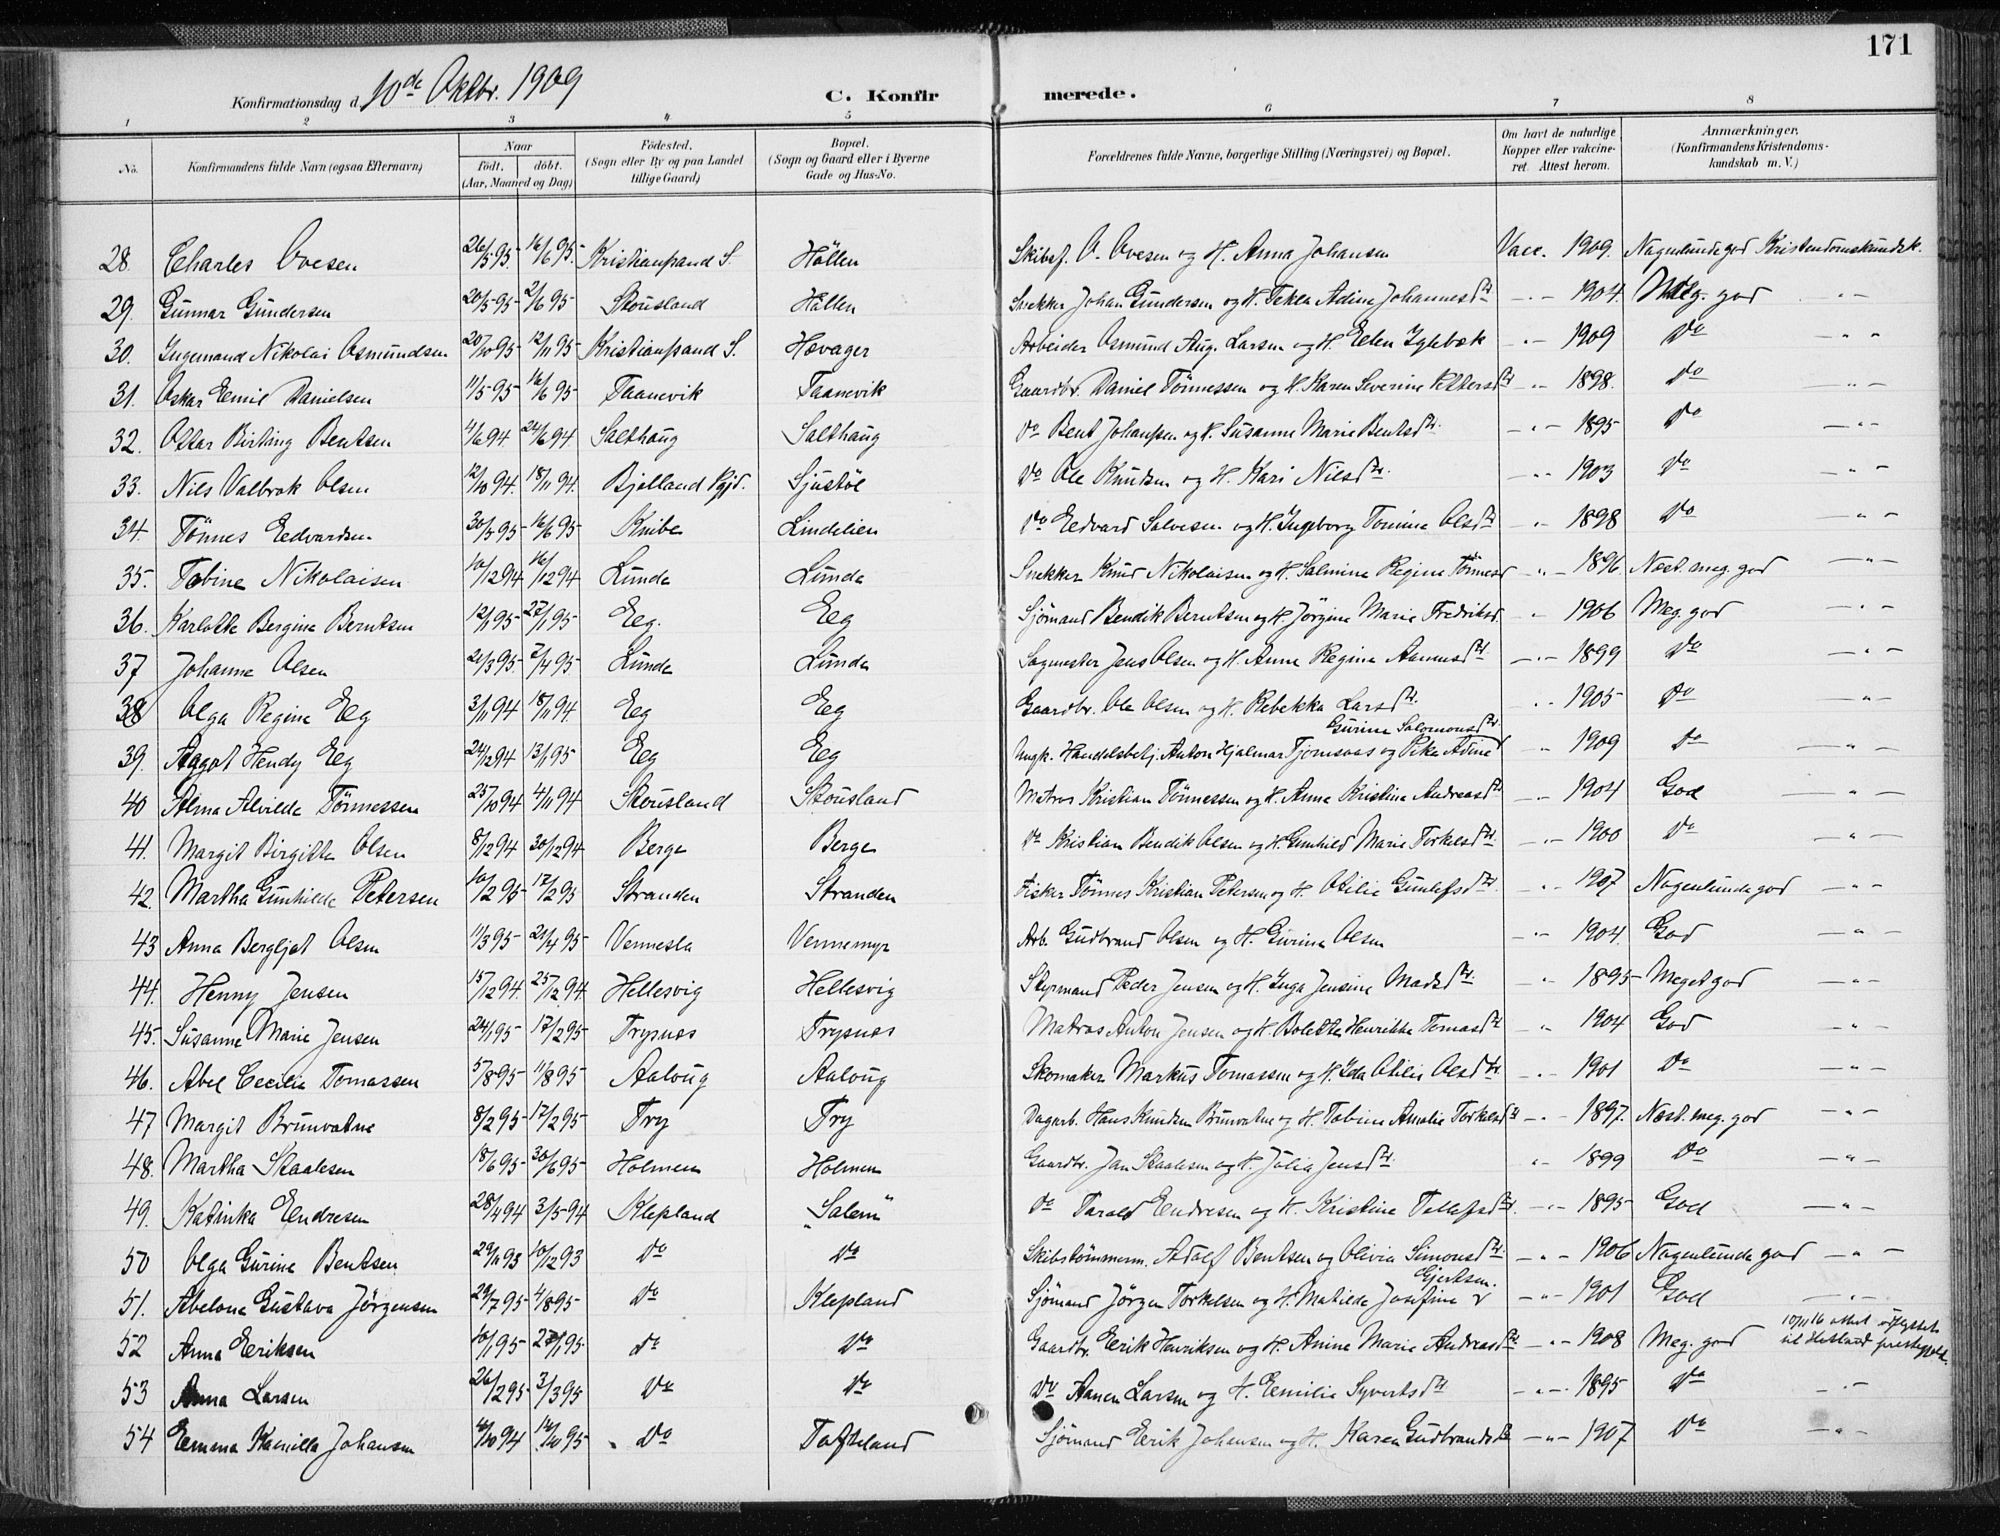 171
Konfirmationsdag d. 10de Oktbr. 1909
C. Konfirmerede.
1 2 3 4 5 6 7 8
No. Konfirmandens fulde Navn (ogsaa Efternavn) Naar Födt, döbt. (Aar, Maaned og Dag) Födested. (Sogn eller By og paa Landet tillige Gaard) Bopæl. (Sogn og Gaard eller i Byerne Gade og Hus-No. Forældrenes fulde Navne, borgerlige Stilling (Næringsvei) og Bopæl. Om havt de naturlige Kopper eller vakcineret. Attest herom. Anmærkninger, (Konfirmandens Kristendomskundskab m. V.)
28. Charles Ovesen 26/5 95 16/6 95 Kristianssand S. Höllen Skibsf. O. Ovesen og H. Anna Johansen Vacc. 1909. Nogenlunde god Kristendomskundsk.
29. Gunnar Gundersen 20/5 95 2/6 95 Skousland Höllen Snekker Johan Gundersen og H. Tekla Adine Johannesdtr -"- 1904 Udlg. god -"-
30. Ingemand Nikolai Osmundsen 20/10 95 12/11 95 Kristianssand S. Hævager Arbeider Osmund Aug. Larsen og H. Elen Ygleb&aelig;k -"- 1909 Do -"-
31. Oskar Emil Danielsen 11/5 95 16/6 95 Taanevik Taanevik Gaardbr. Daniel Tönnessen og H. Karen Severine Pettersdtr -"- 1898. Do -"-
32. Ottar Birting Bentsen 4/6 94 24/6 94 Salthaug Salthaug Do Bent Johansen og H. Susanne Marie Bentsdtr. -"- 1895 Do -"-
33. Nils Valbrok Olsen 12/10 94. 18/11 94. Bjelland Pgjd. Sjustöl Do Ole Knudsen og H. Kari Nilsdtr. -"- 1903 Do -"-
34. Tönnes Edvardsen 30/5 95 16/6 95 Knibe Lindelien Do Edvard Salvesen og H. Ingeborg Tomine Olsdtr " 1898 Do -"-
35. Tobine Nikolaisen 10/12 94 16/12 94 Lunda Lunda Snekker Knud Nikolaisen og H. Salmine Regine Tönnesd -"- 1896. Næst. meg. god -"-
36. Karlotte Bergine Berntsen 12/1 95 27/1 95 Eeg. Eeg Sjömand Bendik Berntsen og H. Jörgine Marie Fredriksd. " 1906 Meg. god -"-
37 Johanne Olsen 21/3 95 7/4 95 Lunda Lunda Sagmester Jens Olsen og H. Anne Regine Aanensdtr. -"- 1899 Do -"-
38 Olga Regine Eeg 3/11 94 18/11 94. Eeg Eeg Gaardbr. Ole Olsen og H. Rebekka Larsdtr. " 1905 Do -"-
Gurine Salomonsdtr.
39. Aagot Hendy Eeg 24/12 94 13/1 95 Eeg Eeg Ungk. Handelsbetj. Anton Hjalmar Tjomsaas og Pike Adine " 1909 Do -"-
40 Alma Alvilde Tönnessen 25/10 94 4/11 94 Skousland Skousland Matros Kristian Tönnessen og H. Anna Kristine Andreasdtr -"- 1904 God -"-
41. Margit Birgitte Olsen 8/12 94 30/12 94 Berge Berge Do Kristian Bendik Olsen og H. Gunhild Marie Torkelsdtr -"- 1900 Do -"-
42. Martha Gunhilde Petersen 10/2 95 17/2 95 Stranden Stranden Fisker Tönnes Kristian Petersen og H. Otilie Gunlefsdtr. -"- 1907 Nogenlunde god -"-
43 Anna Bergljot Olsen 11/3 95 21/4 95 Vennesla Vennemyr Arb. Gudbrand Olsen og H. Gurine Olsen -"- 1904. God -"-
44. Henny Jensen 15/12 94. 25/12 94 Hellesvig Hellesvig Styrmand Peder Jensen og H. Inga Jensine Madsdtr. " 1895 Meget god -"-
45. Susanne Marie Jensen 24/1 95 17/2 95 Trysnæs Trysnæs Matros Anton Jensen og H. Bolette Henrikke Tomasdtr -"- 1904 God -"-
46. Abel Cecilie Tomassen 5/8 95 11/8 95 Aaloug Aaloug Skomaker Markus Tomassen og H. Ida Otilie Olsdtr -"- 1901 Do -"-
47 Margit Brunvatne 8/2 95 17/2 95 Try Try Dagarb. Hans Knudsen Brunvatne og H. Tobine Amalie Torkelsdtr -"- 1897. Næst. meg. god -"-
48. Martha Skaalesen 18/6 95 30/6 95 Holmen Holmen Gaardbr. Jan Skaalesen og H. Julia Jensdtr. " 1899 Do -"-
49. Katinka Endresen 28/4 94 3/5 94 Klepland "Salem" Do Tarald Endresen og H. Kristine Tellefsdtr. -"- 1895 God -"-
50 Olga Gurine Bentsen 29/11 93 10/12 93 Do Do Skibstömmerm. Adolf Bentsen og Olivia Simonsdtr. -"- 1906 Nogenlunde god -"-
Gjertsen.
51. Abelone Gustava Jörgensen 29/7 95 4/8 95 Do Klepland Sjömand Jörgen Torkelsen og H. Matilde Josefine -"- 1901 God -"-
52 Anna Eriksen 10/1 95 27/1 95 do Do Gaardbr. Eerik Henriksen og H. Anine Marie Andreasdtr -"- 1908 Meg. god 10/11 16 attest utflyttet til Hetland prestegjeld.
53 Anna Larsen 26/2 95 3/3 95 Do Do Do Aanen Larsen og H. Emilie Syvertsdtr -"- 1895 Do -"-
54 Emma Kamilla Johansen /10 94 14/10 95 Do Tofteland Sjömand Eerik Johansen og H. Karen Gudbrandsdtr -"- 1907 Do -"-